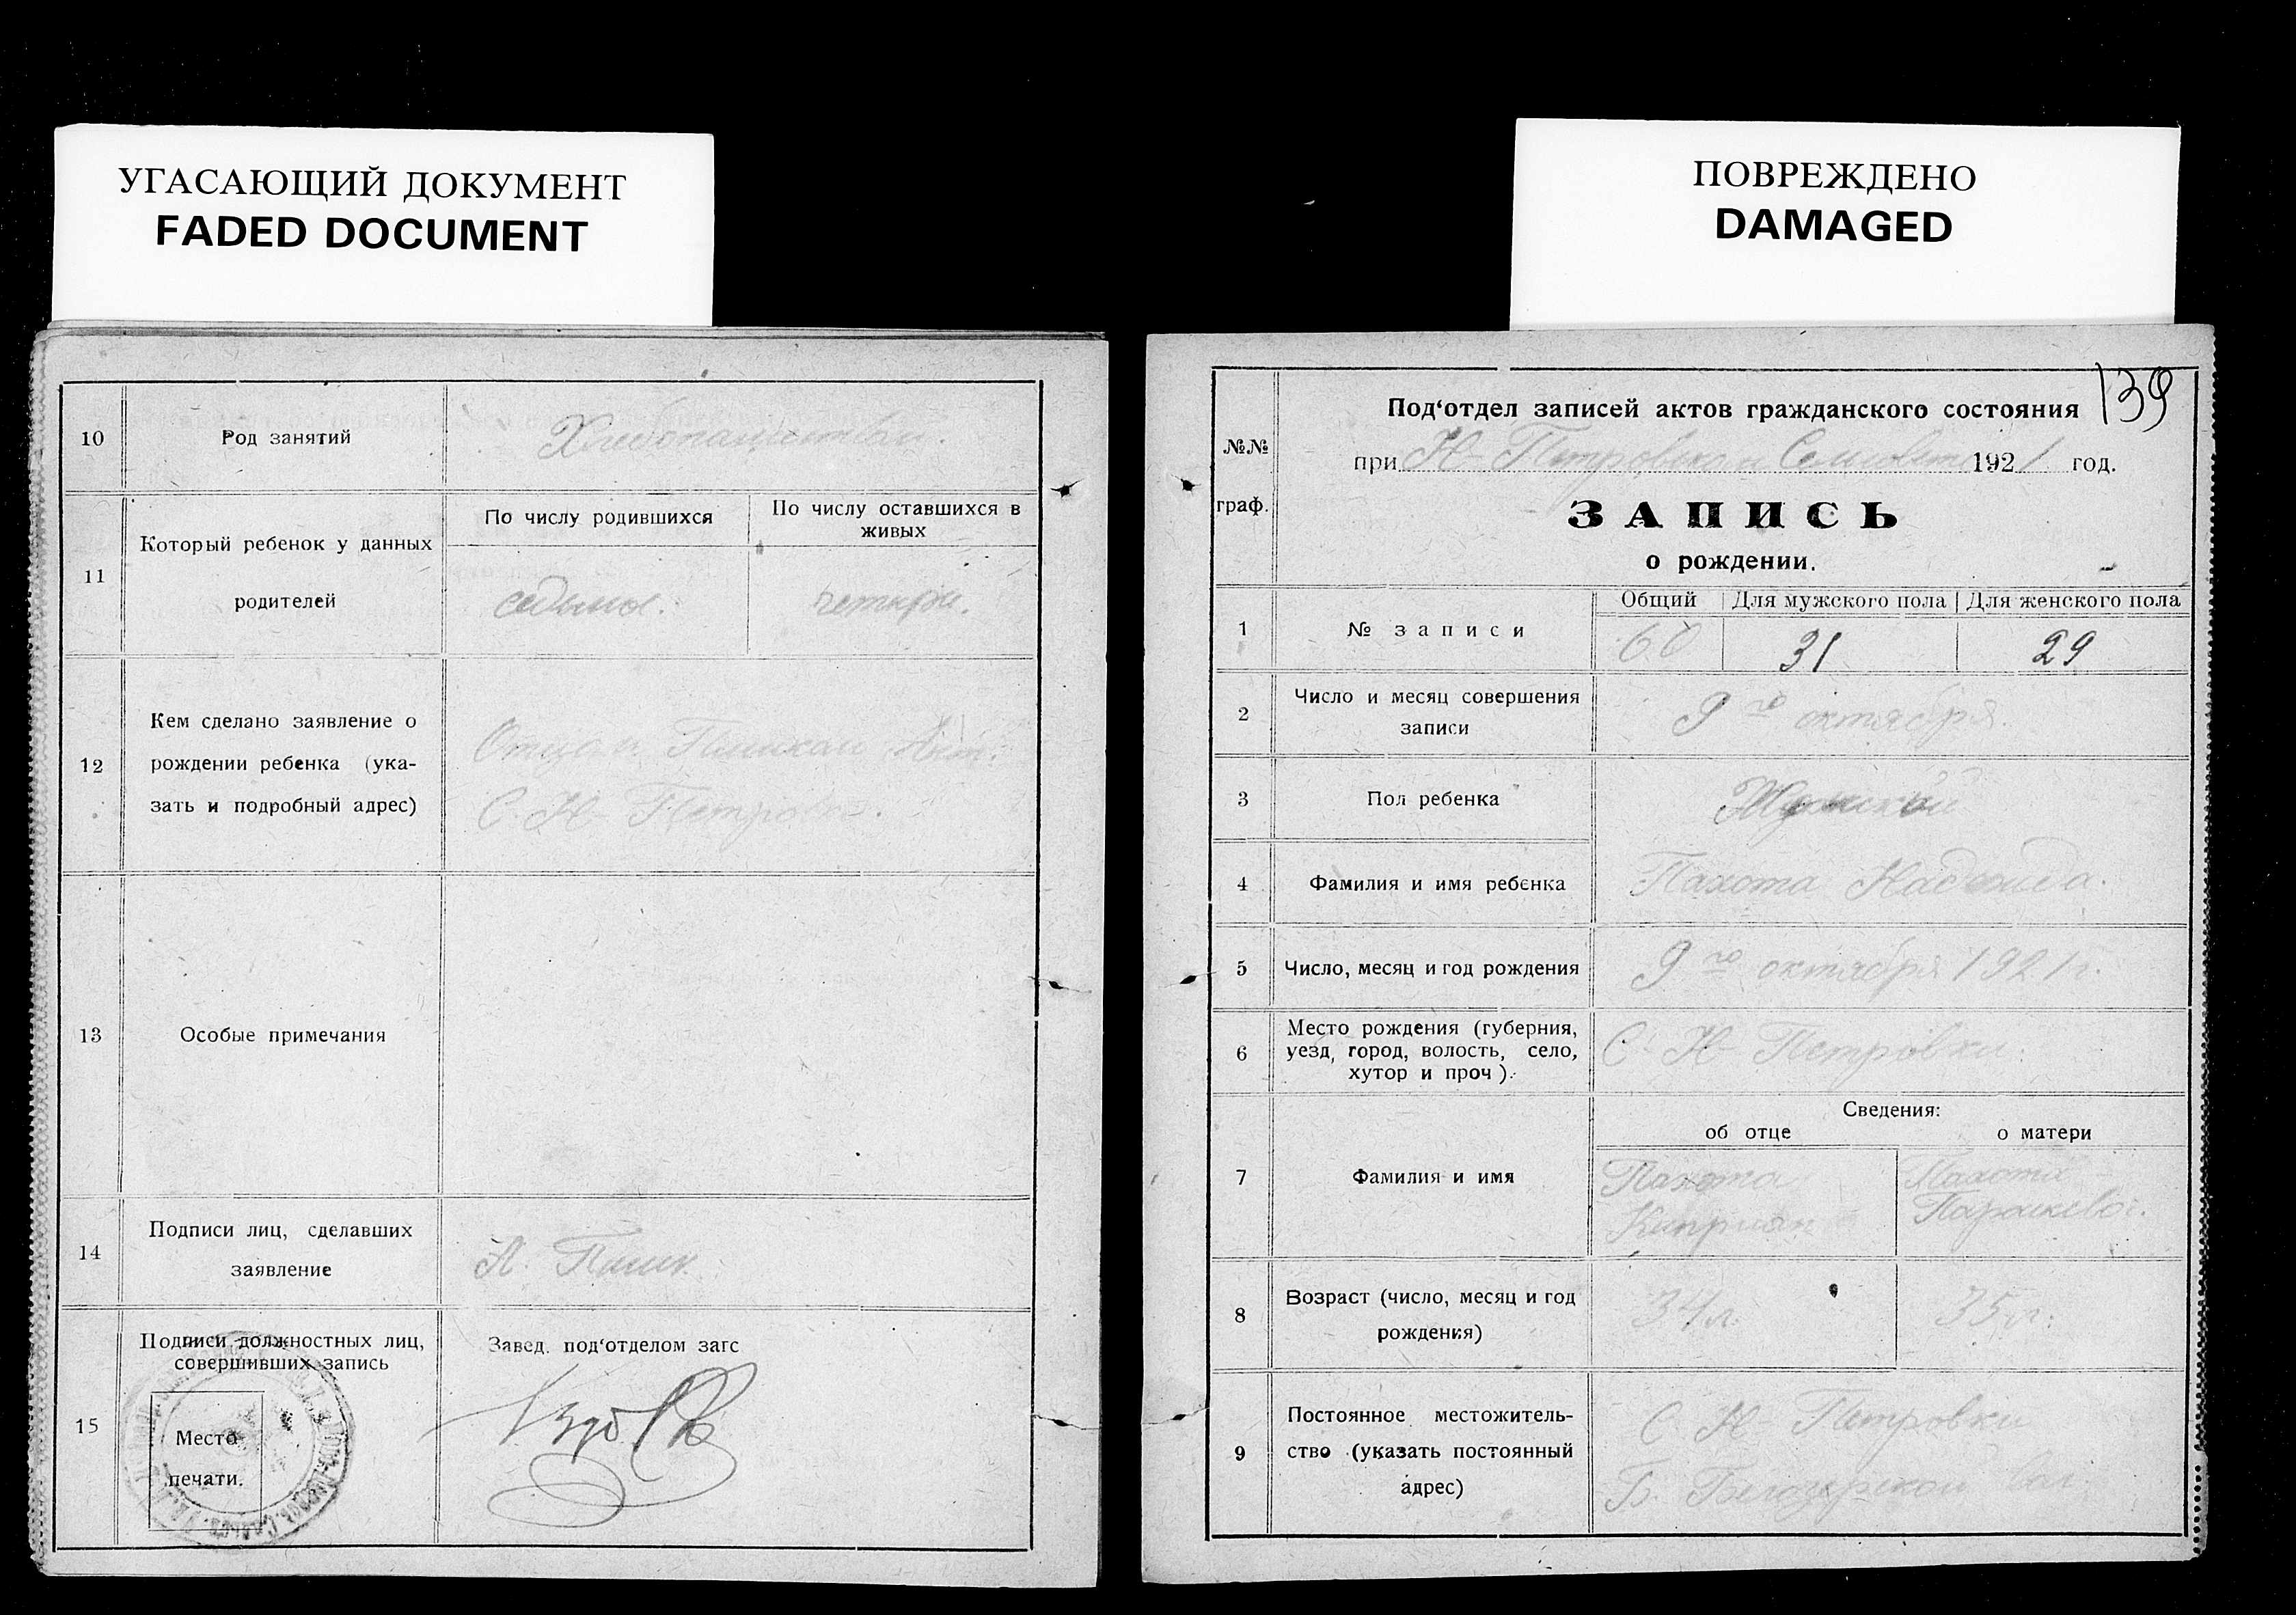 УГАСАЮЩИЙ ДОКУМЕНТ
FADED DOCUMENT
10
Род занятий
11
Который ребенок у данных
родителей
По числу родившихся
По числу оставшихся в
живых
седьмой.
четыре.
12
Кем сделано заявление о
рождении ребенка (ука-
зать и подробный адрес)
Отцом
С. Н-Петровка.
13
Особые примечания
14
Подписи лиц, сделавших
заявление
15
Подписи должностных лиц,
совершивших запись
Место
печати.
Завед. под‘отделом загс
ПОВРЕЖДЕНО
DAMAGED
139
№№
граф.
Под‘отдел записей актов гражданского состояния
при Н-Петровском 1921 год.
ЗАПИСЬ
о рождении.
1
№ записи
Общий
Для мужского пола
Для женского пола
60
31
29
2
Число и месяц совершения
записи
9го октября.
3
Пол ребенка
Мужской
4
Фамилия и имя ребенка
Пахота Надежда.
5
Число, месяц и год рождения
9го октября 1921 г.
6
Место рождения (губерния,
уезд, город, волость, село,
хутор и проч).
С. Н-Петровки
7
Фамилия и имя
Сведения:
об отце
о матери
Пахота
Киприян
Пахота
Параскева.
8
Возраст (число, месяц и год
рождения)
34 л.
35 л.
9
Постоянное местожитель-
ство (указать постоянный
адрес)
С. Н-Петровки
Б. вол.